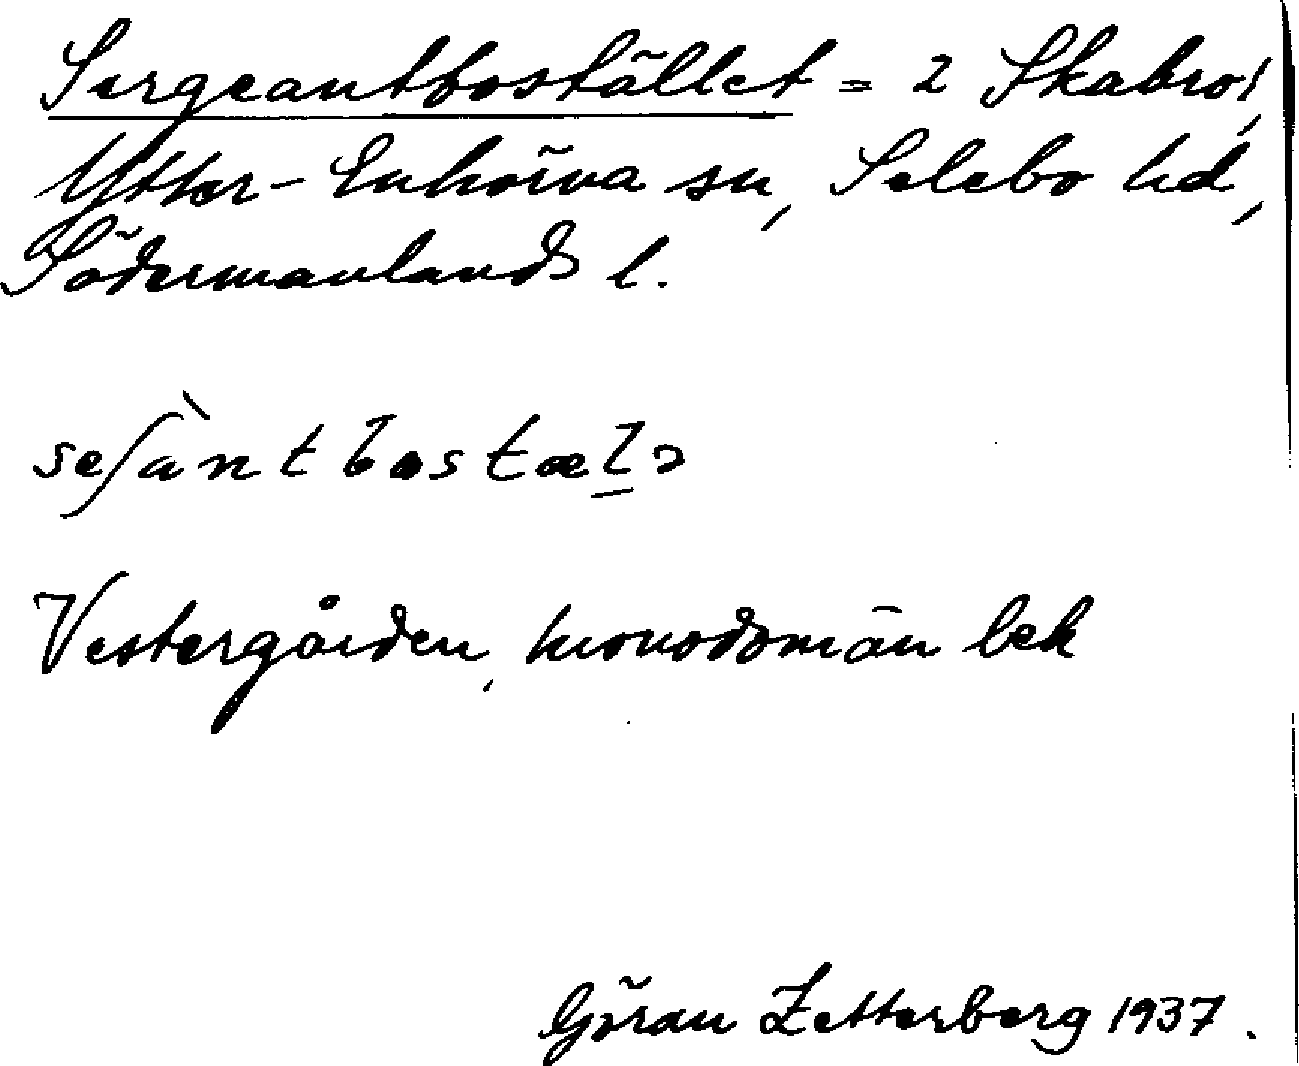 Sergeantbostället = 2 Skabro,
Ytter-Enhörna sn, Selebo hd,
Södermanlands l.
seʃànt bostælə
Vestergården, kronodomän bek
Göran Zetterberg 1937.